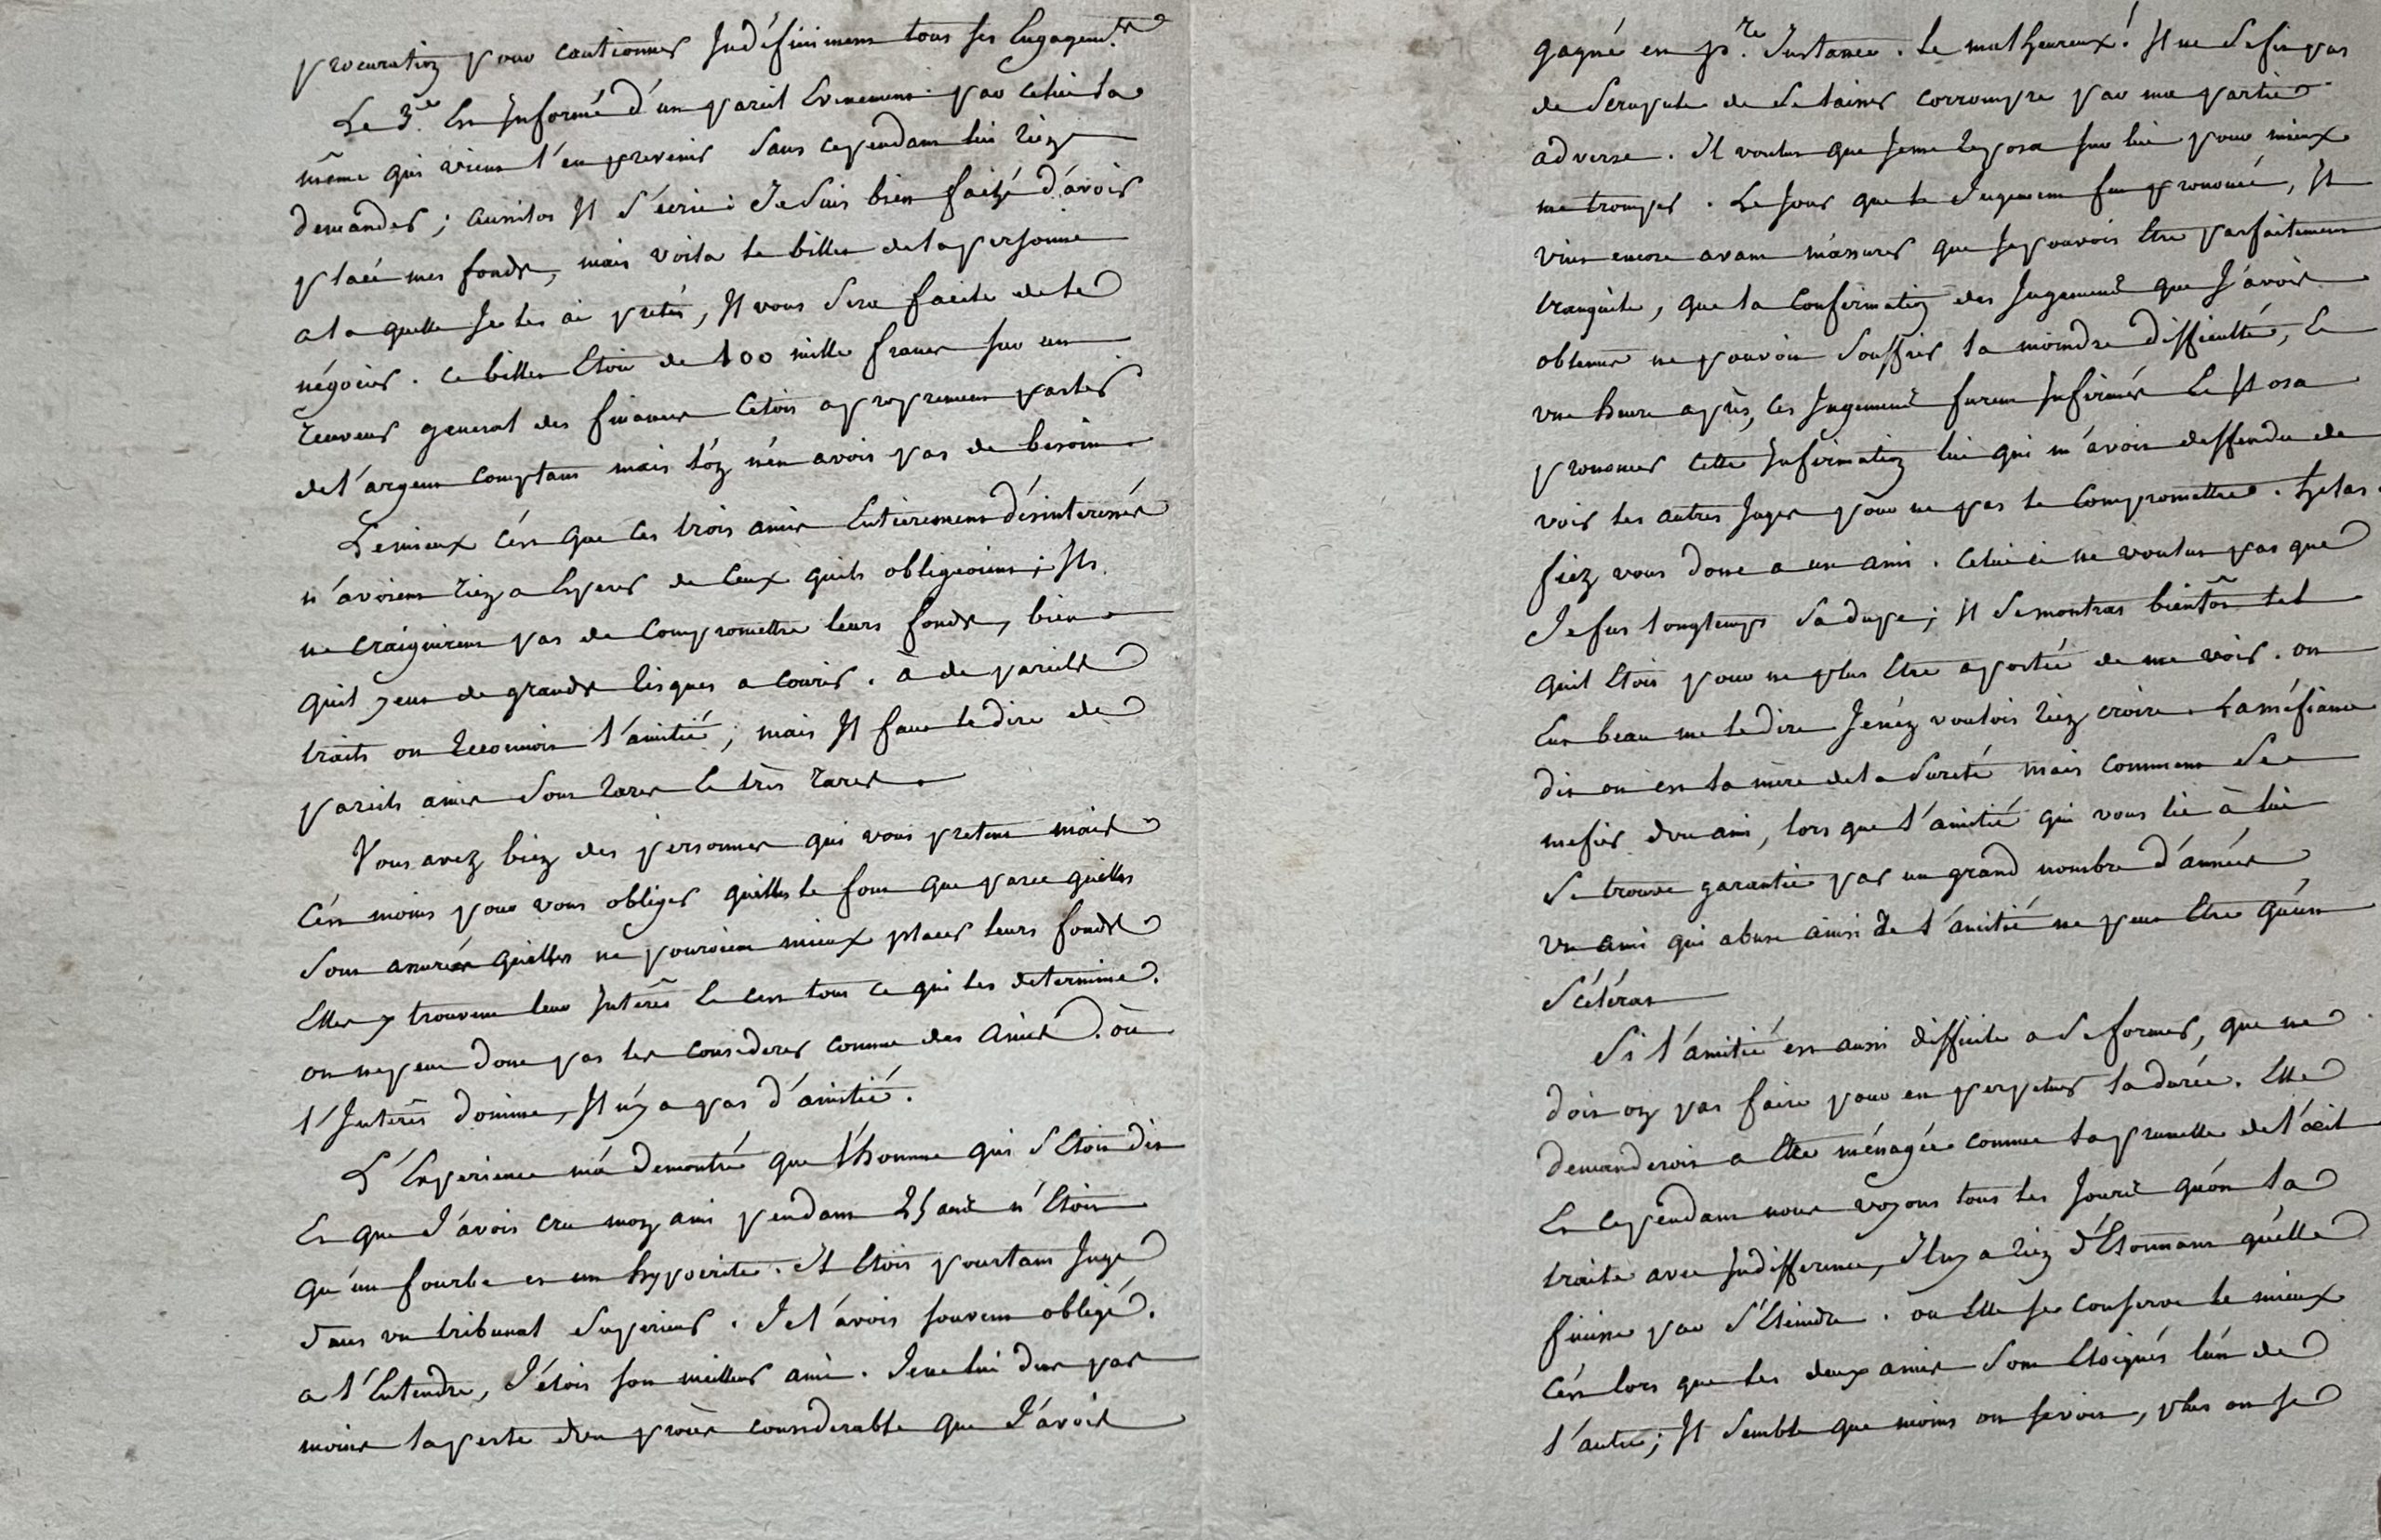 procuration pour cautionner Indéfiniment tous ses Engagem.ts
Le 3.e Est Informé d'un pareil Evenement par celui la
même qui vient l'en prevenir sans cependant lui rien
demander; aussitot Il s'écrie: Je suis bien faché d'avoir
placé mes fonds, mais voila le billet de la personne
a la quelle Je les ai pretés, Il vous sera facile de le
négocier. ce billet Etoit de 100 mille francs sur un
receveur general des finances Cetoit a proprement parler
de l'argent comptant mais l'on n'en avoit pas de besoin
Le mieux c'est que ces trois amis Entierement désinteressés
n'avoient rien a Esperer de Ceux quils obligeoient; Ils
ne craignirent pas de Compromettre leurs fonds, bien
quil y eut de grands risques a courir. à de pareils
traits on reconnoit l'amitié; mais Il faut le dire de
pareils amis sont rares Et très rares
Vous avez bien des personnes qui vous pretent mais
C'est moins pour vous obliger qu'elles le font que parce qu'elles
sont assurées qu'elles ne pouroient mieux placer leurs fonds
Elles y trouvent leur Interêt Et cest tout ce qui les determine.
on ne peut donc pas les considerer comme des Amis. où
l'Interêt domine, Il n'y a pas d'amitié.
L'Experience m'a demontré que l'homme qui s'Etoit dit
Et que J'avois cru mon ami pendant 25 ans n'Etoit
qu'un fourbe et un hypocrite. Il Etoit pourtant Juge
dans un tribunal superieur. Je l'avois souvent obligé.
a l'Entendre, J'étois son meilleur ami. Je ne lui dus pas
moins la perte d'un procès considerable que J'avois
gagné en p.re Instance. Le malheureux! Il ne se fit pas
de scrupule de se laisser corrompre par ma partie
adverse. Il voulut que Je me reposa sur lui pour mieux
me tromper. Le Jour que le Jugement fut prononcé, Il
vint encore avant m'assurer que Je pouvois Etre parfaitement
tranquile, que la Confirmation des Jugements que J'avois
obtenus ne pouvoit souffrir la moindre difficulté, Et
une heure après, ces Jugements furent Infirmés Et Il osa
prononcer cette Infirmation lui qui m'avoit deffendu de
voir les autres Juges pour ne pas le Compromettre. helas
fiez vous donc a un ami. celui ci ne voulut pas que
Je fus longtemps sa dupe; Il se montra bientôt tel
quil Etoit pour ne plus Etre a portée de me voir. on
Eut beau me le dire Je n'en voulois rien croire. La méfiance
dit on est la mere de la sureté mais comment se
mefier d'un ami, lors que l'amitié qui vous lie à lui
se trouve garantie par un grand nombre d'années,
un ami qui abuse ainsi de l'amitié ne peut Etre qu'un
scélérat
Si l'amitié est aussi difficile a se former, que ne
doit on pas faire pour en perpetuer la durée. Elle
demanderoit a Etre ménagée comme la prunelle de l'œil
Et cependant nous voyons tous les Jours qu'on la
traite avec Indifference, Il n'y a rien d'Etonnant qu'elle
finisse par s'Eteindre. où Elle se conserve le mieux
C'est lors que les deux amis sont Eloignés l'un de
l'autre; Il semble que moins on se voit, plus on se